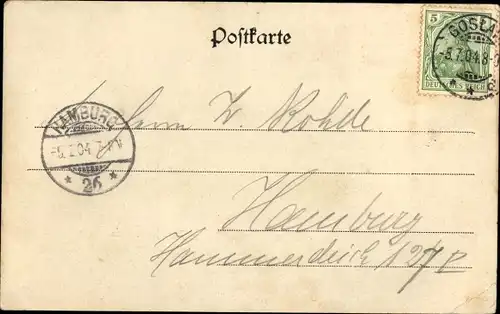 Postkarte
5
DEUTSCHES REICH
GOSLAR
-5.7.04.8-
* *
HAMBURG
-5.7.04.7-
* 26 *
Herrn W Rohde
Hamburg
Hammerdeich 127 P